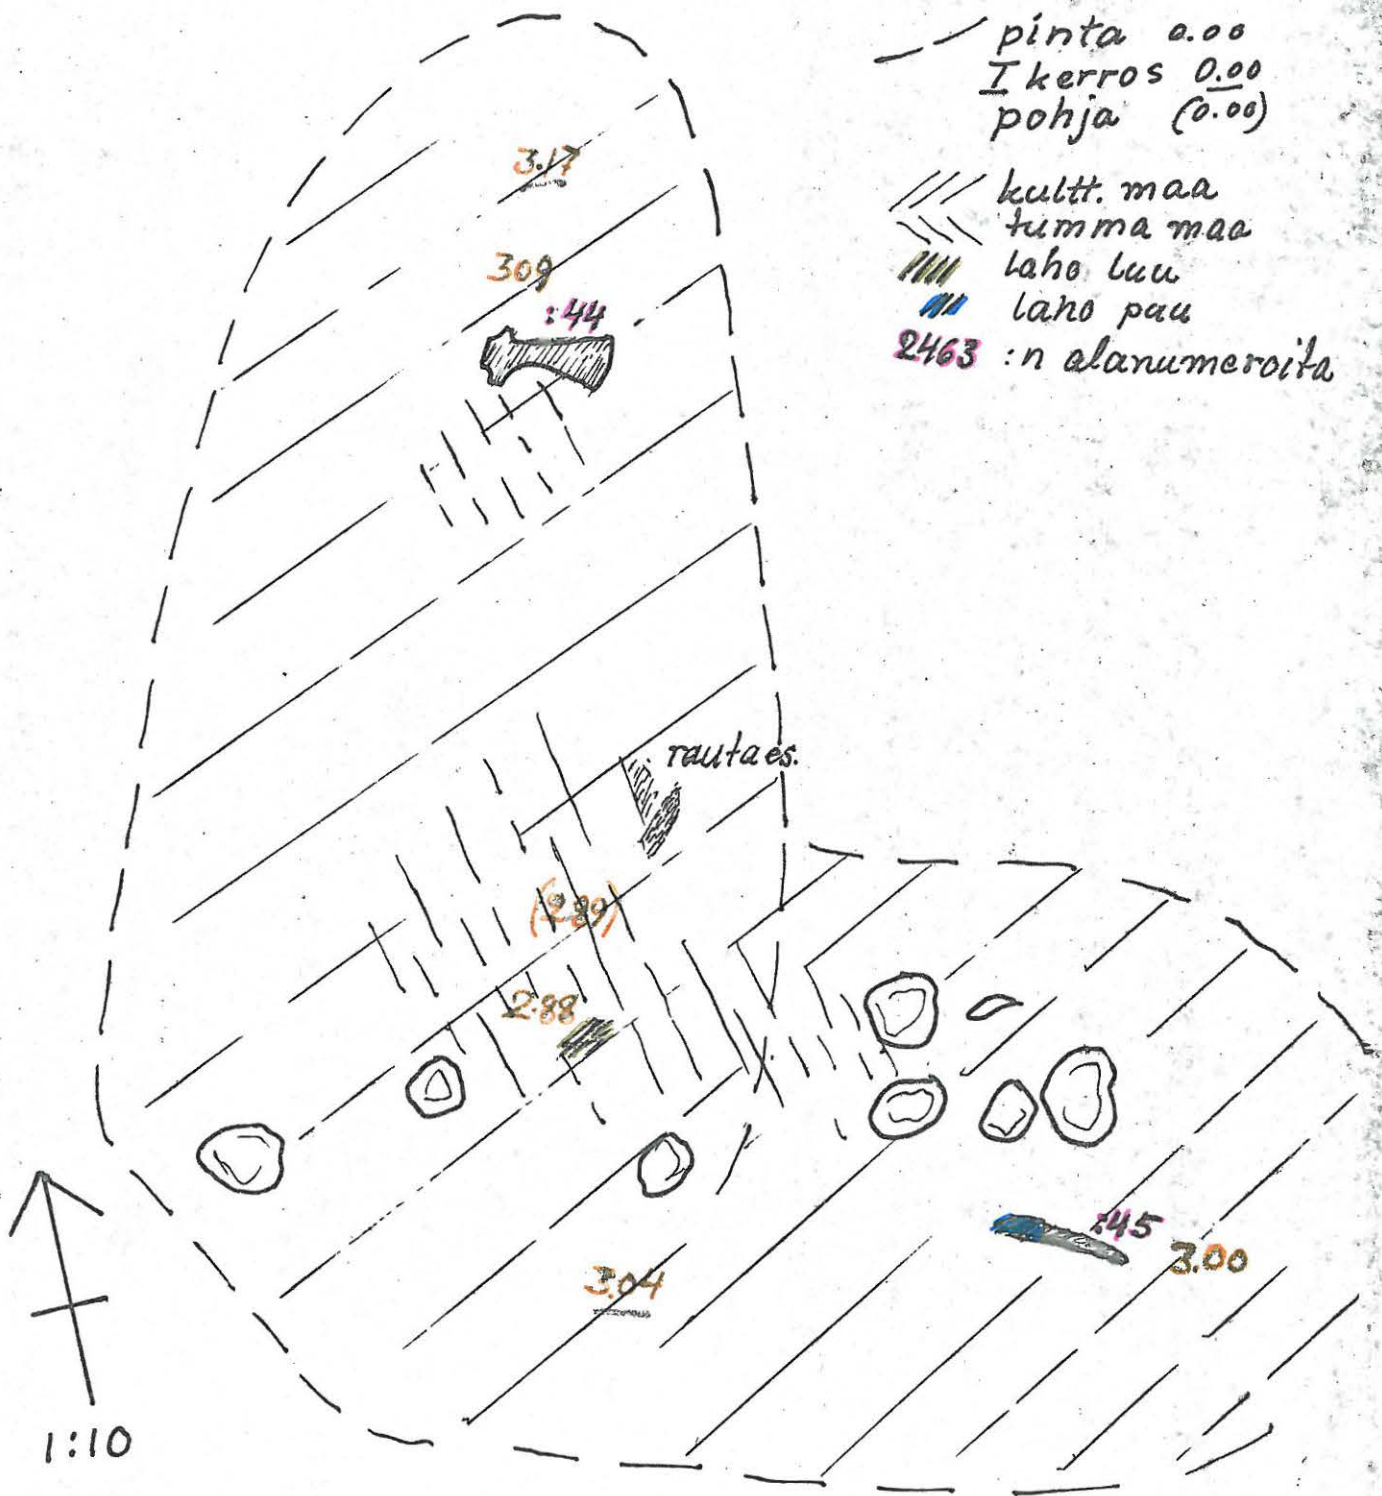 pinta 0.00
I kerros 0.00
pohja (0.00)
kultt. maa
tumma maa
laho luu
laho puu
2463 :n alanumeroita
3.17
309
:44
rautaes.
(289)
2.88
:45
3.00
3.04
1:10